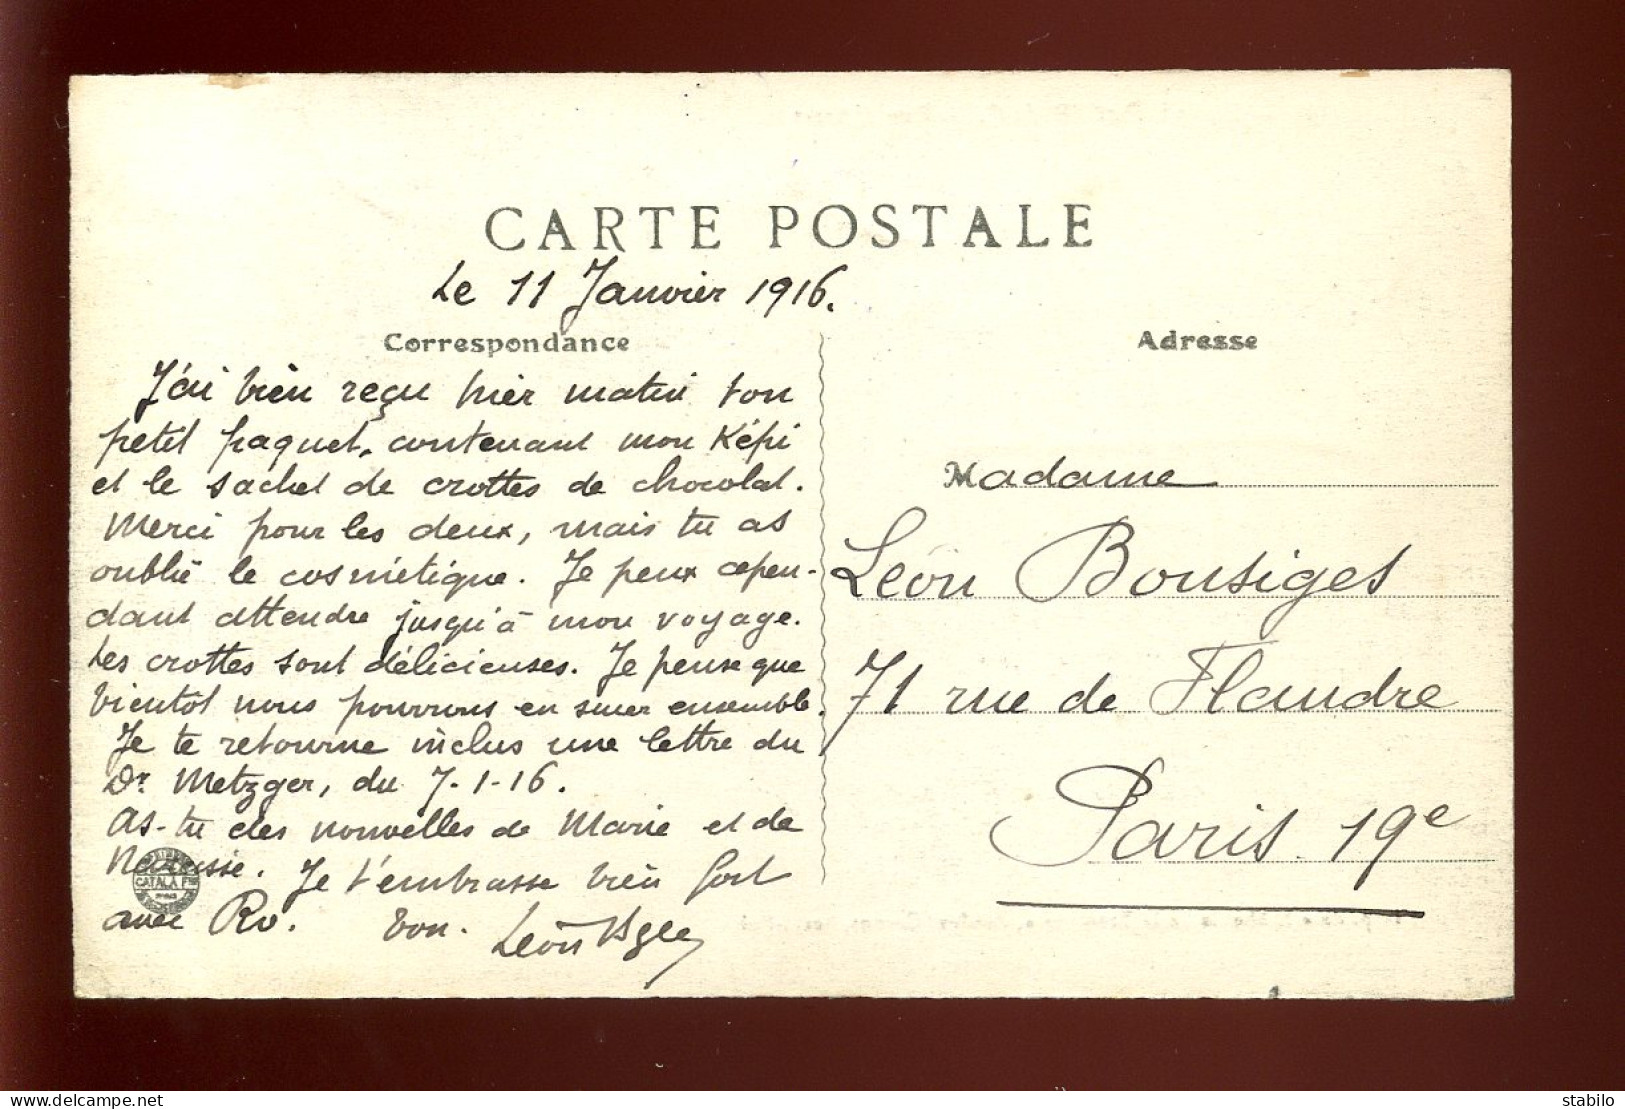 CARTE POSTALE
Le 11 Janvier 1916.
Correspondance
J'ai bien reçu hier matin ton
petit paquet, contenant mon Képi
et le sachet de crottes de chocolat.
Merci pour les deux, mais tu as
oublié le cosmétique. Je peux cepen-
dant attendre jusqu'à mon voyage.
Les crottes sont délicieuses. Je pense que
bientot nous pourrons en sucer ensemble.
Je te retourne inclus une lettre du
Dr Metzger, du 7-1-16.
As-tu des nouvelles de Marie et de
Je t'embrasse bien fort
avec Ro. ton.
Léon
CATALA
Adresse
Madame
Léon Bousiges
71 rue de Flandre
Paris 19e
delcampe.net
stabilo